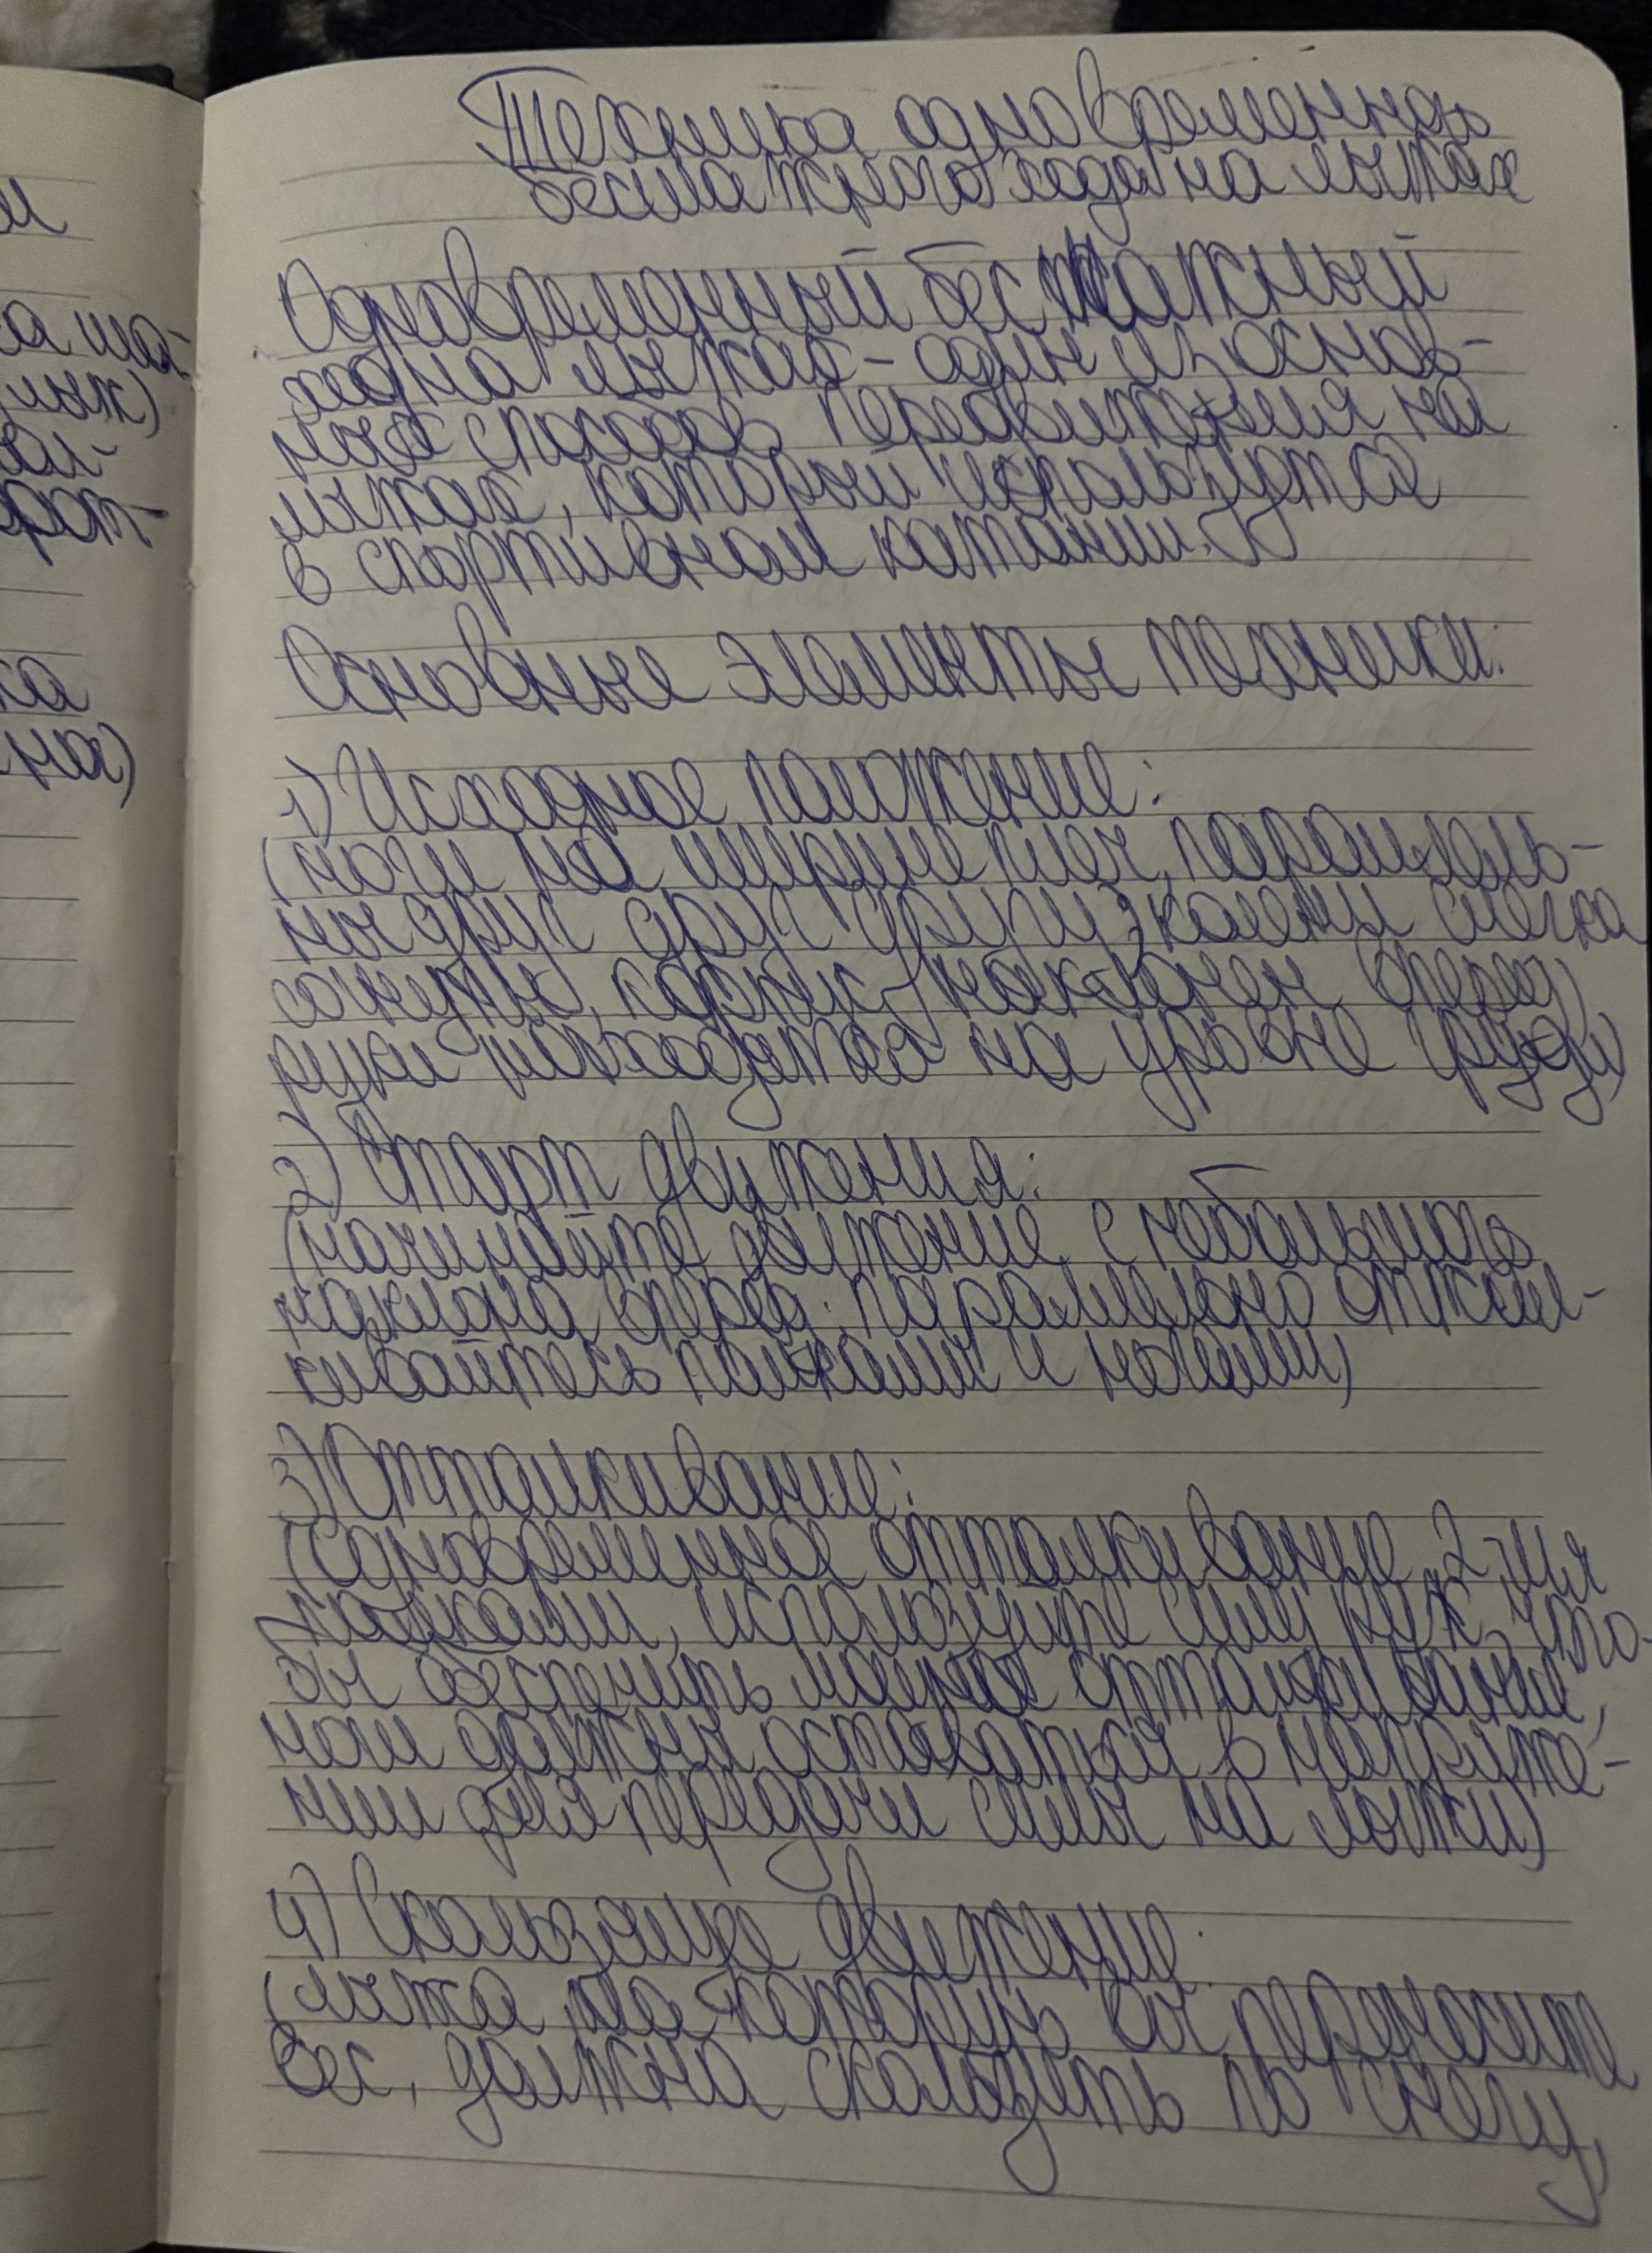 Техника одновременно
бесшажного хода на лыжах
Одновременный бесшажный
ход на лыжах - один из основ-
ных способов передвижения на
лыжах, который используется
в спортивном катании.
Основные элементы техники:
1) Исходное положение:
(ноги на ширине плеч, параллель-
ны друг другу, колени слегка
согнуты, корпус наклонен вперед,
руки находятся на уровне груди)
2) Старт движения:
(начинайте движение с небольшого
наклона вперед; параллельно оттал-
кивайтесь палками и ногами)
3) Отталкивание:
(одновременное отталкивание 2-мя
палками, используйте силу рук, что-
бы обеспечить мощное отталкивание,
ноги должны оставаться в напряже-
нии для передачи силы на лыжи)
4) Скользящее движение:
(лыжа на которую вы переносите
вес, должна скользить по снегу,
ш
ка ша-
лыж)
рот-
ка
на)